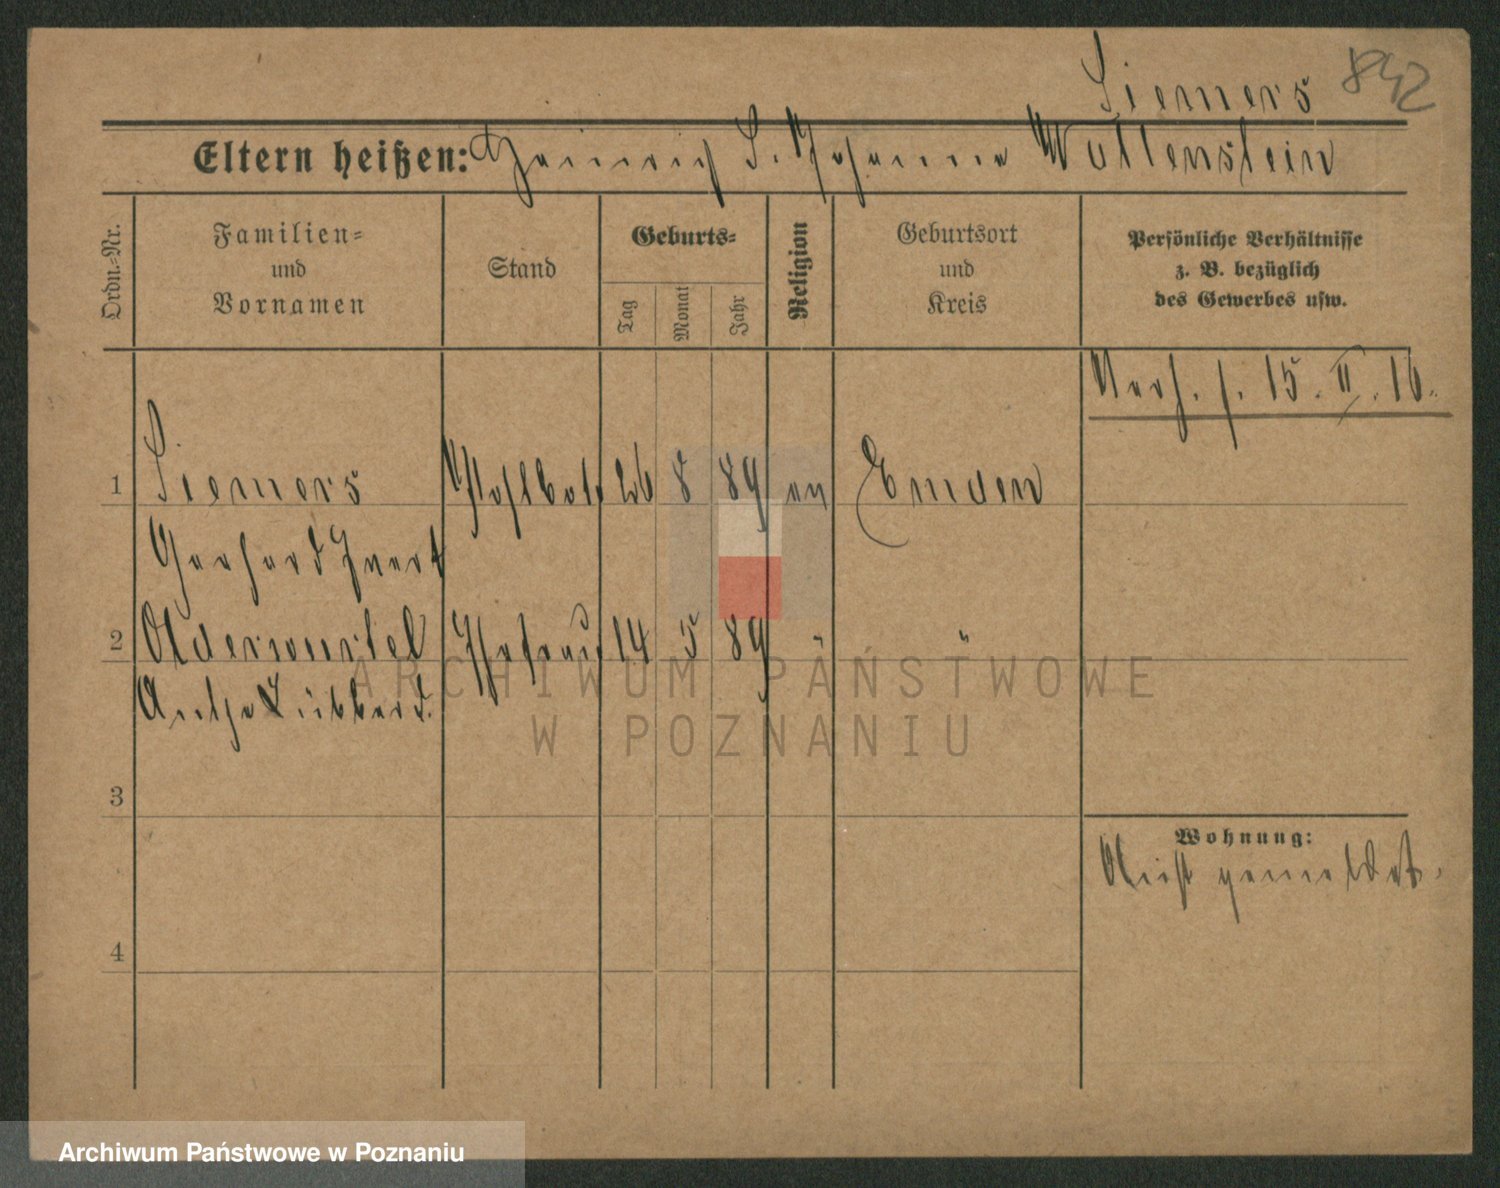 Siemers 842
Eltern heißen: Heinrich S. Johanne Wollenstein
Ordn.-Nr.
Familien-
und
Vornamen
Stand
Geburts-
Tag
Monat
Jahr
Religion
Geburtsort
und
Kreis
Persönliche Verhältnisse
z. B. bezüglich
des Gewerbes usw.
Verh. s. 15. II. 16.
1 Siemers 26 8 89 ev Emden
Gerhard Evert
2 Olderwurtel 14 5 89 " "
Antje Lübberd.
ARCHIWUM PAŃSTWOWE
W POZNANIU
3
Wohnung:
Nicht gemeldet.
4
Archiwum Państwowe w Poznaniu